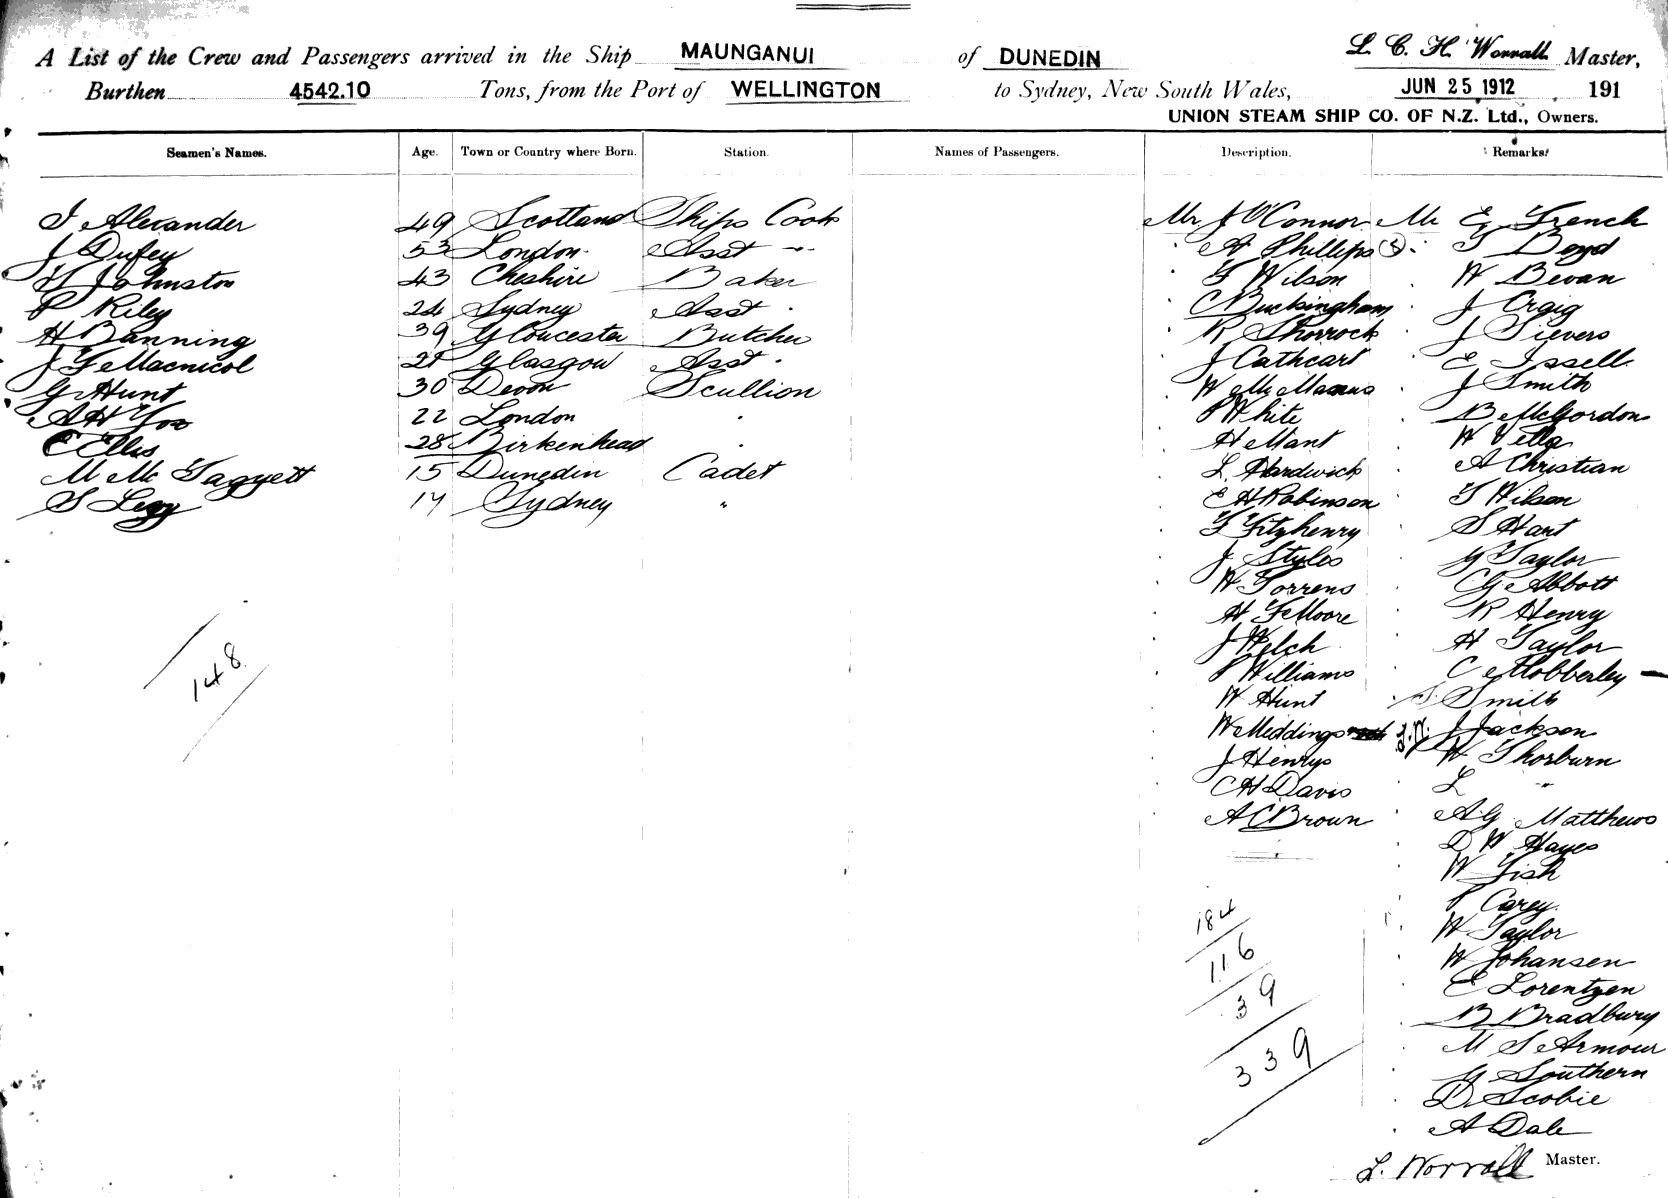 A List of the Crew and Passengers arrived in the Ship MAUNGANUI of DUNEDIN L. C. H. Worrall Master,
Burthen 4542.10 Tons, from the Port of WELLINGTON to Sydney, New South Wales, JUN 25 1912 191
UNION STEAM SHIP CO. OF N.Z. Ltd., Owners.
Seamen's Names. Age. Town or Country where Born. Station. Names of Passengers. Description. Remarks.
Alexander 49 Scotland Ships Cook
J Dufey 53 London Asst "
Johnston 43 Cheshire Baker
P Riley 24 Sydney Asst
H Banning 39 Gloucester Butcher
J F Macnicol 21 Glasgow Asst
G Hunt 30 Devon Scullion
A H Fox 22 London "
C Ellis 28 Birkenhead "
M Mc Taggett 15 Dunedin Cadet
S Legg 17 Sydney "
148
Mr J O'Connor
" A Phillips
" F Wilson
C Buckingham
" R Shorrock
" J Cathcart
" W McManus
" P White
" H Mant
" L Hardwick
" E H Robinson
" F Fitzhenry
" J Styles
" W Torrens
" H F Moore
" J Welch
" P Williams
" W Hunt
W Middings
" J Henrys
" C H Davis
" A C Brown
184
116
39
339
Mr E French
(S) " T Boyd
" W Bevan
" J Craig
" J Sievers
" E Issell
" J Smith
" B McGordon
" W Vella
" A Christian
" T Wilson
" S Hart
" G Taylor
" C G Abbott
" R Henry
" H Taylor
" C Mobberley
" S. Smith
" J Jackson
" W Thorburn
" L "
" A G Matthews
" D W Hayes
" W Fish
" P Carey
" W Taylor
" W Johansen
" E Lorentzen
" B Bradbury
" M S Armour
" G Southern
" D Scobie
" A Dale
L. Worrall Master.